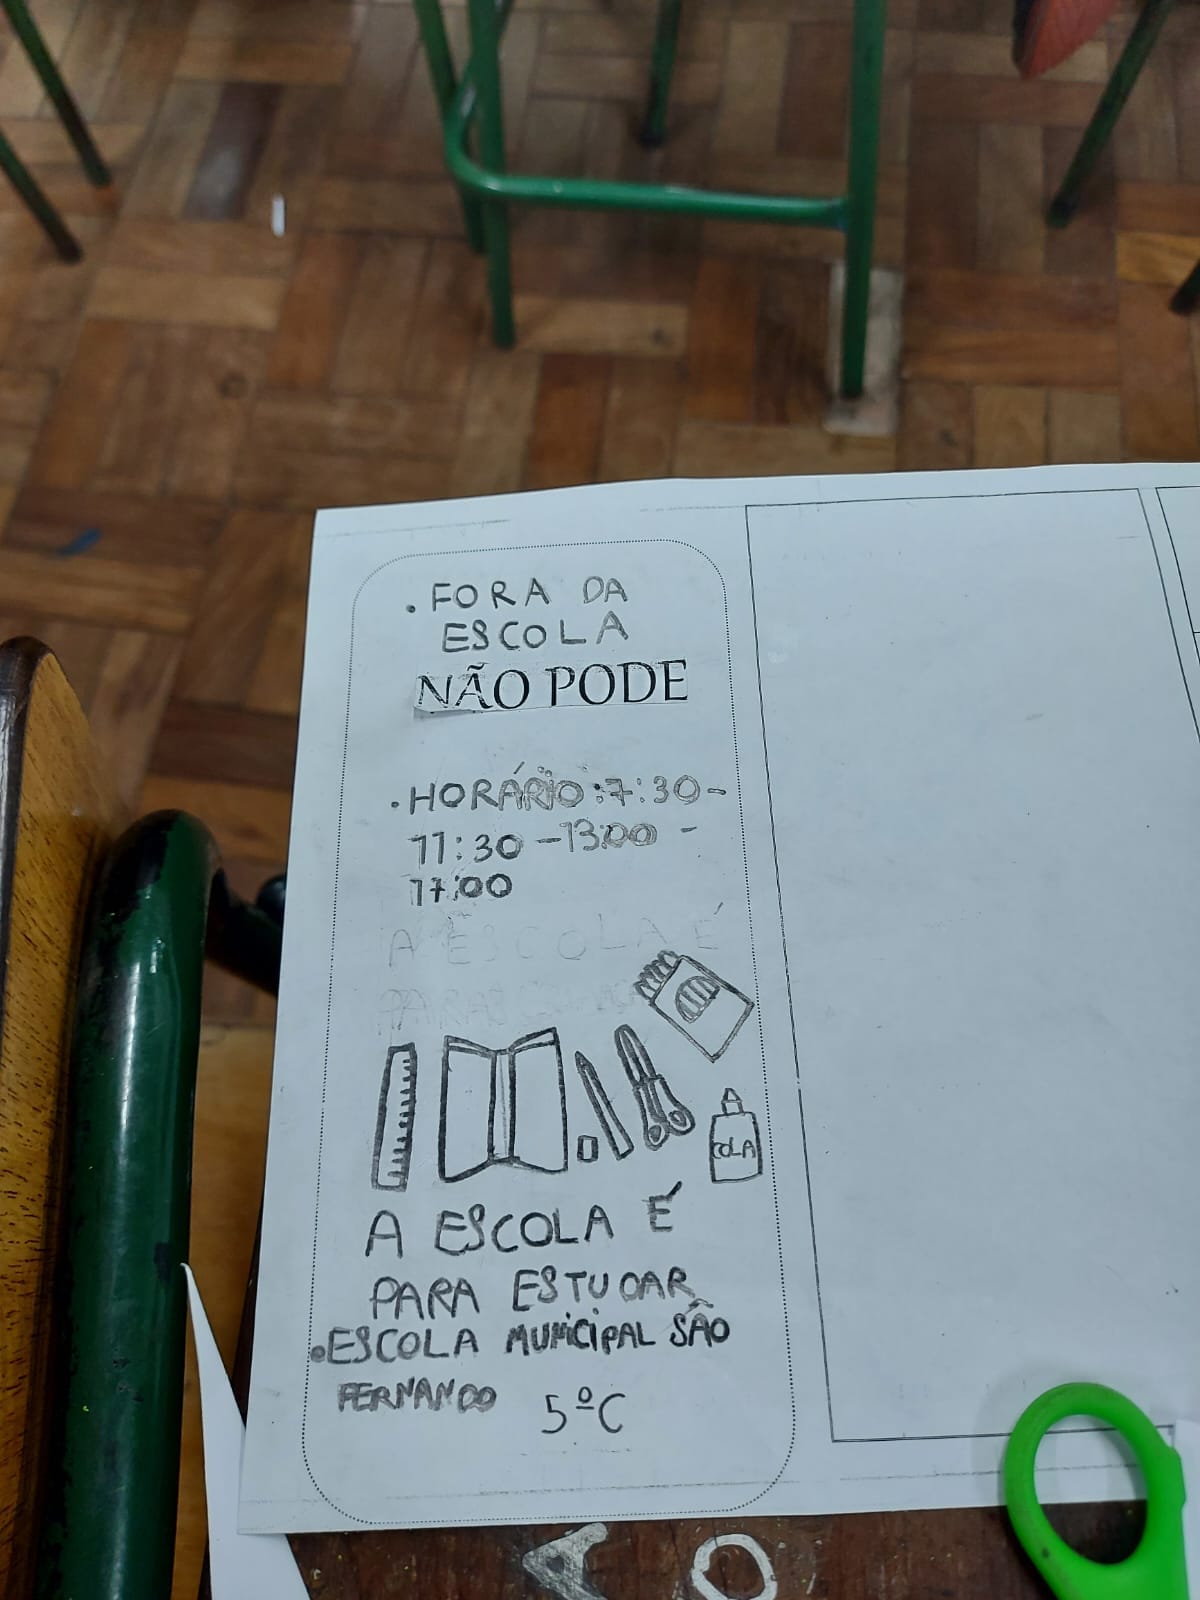 . FORA DA
ESCOLA
NÃO PODE
. HORÁRIO: 7:30 -
11:30 - 13:00 -
17:00
A ESCOLA É
COLA
A ESCOLA É
PARA ESTUDAR
. ESCOLA MUNICIPAL SÃO
FERNANDO 5ºC